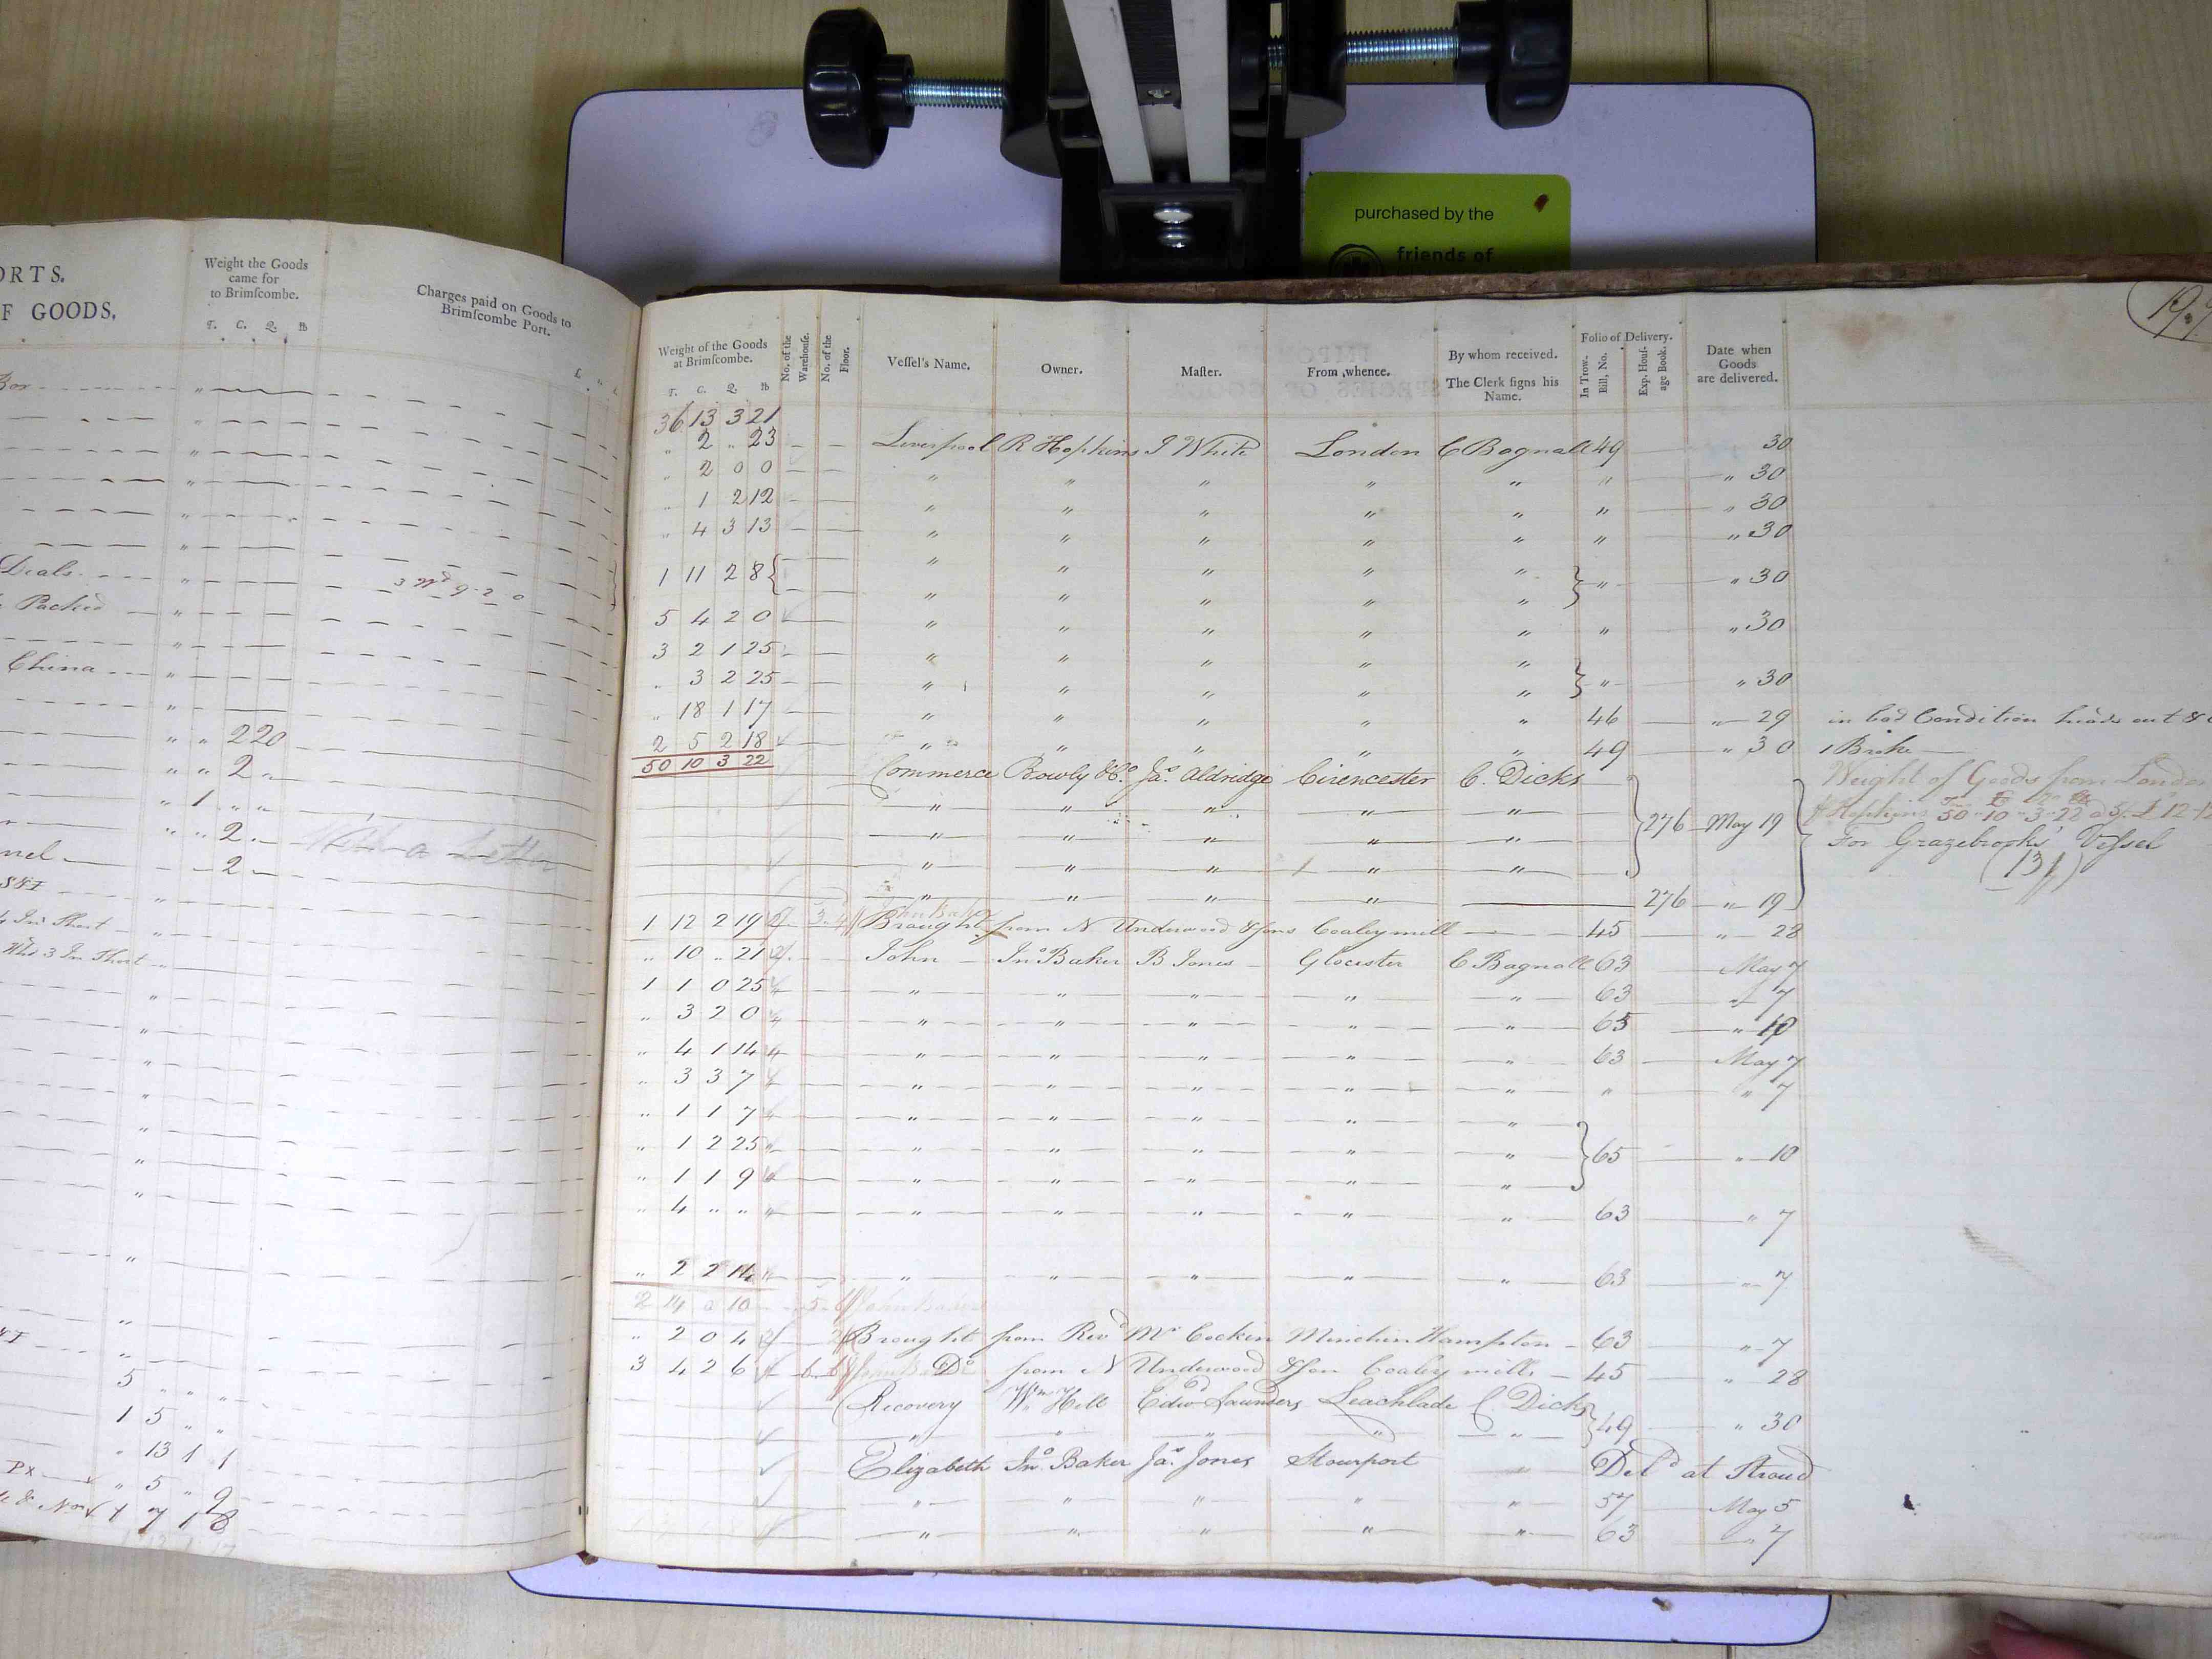 purchased by the
friends of
ORTS.
F GOODS.
Weight the Goods
came for
to Brimſcombe.
T. C. Q. lb
Charges paid on Goods to
Brimſcombe Port.
Box
Deals
Packed
China
" " 2 20
" " 2 "
" 1 " "
" " 2 "
nel
2
In Short
3 In Short
5 " " "
1 5 " "
" 13 1 1
Px " 5 " 9
1 7 1 8
Weight of the Goods
at Brimſcombe.
T. C. Q. lb
No. of the
Warehouſe.
No. of the
Floor.
Veſſel's Name.
Owner.
Maſter.
From whence.
By whom received.
The Clerk ſigns his
Name.
Folio of Delivery.
In Trow.
Bill, No.
Exp. Houſ-
age Book.
Date when
Goods
are delivered.
36 13 3 21
" 2 " 23 Liverpool R Hopkins J White London C Bagnall 49 30
" 2 0 0 " " " " " " " 30
" 1 2 12 " " " " " " " 30
" 4 3 13 " " " " " " " 30
1 11 2 8 " " " " " " " 30
" " " " "
5 4 2 0 " " " " " " " 30
3 2 1 25 " " " " "
" 3 2 25 " " " " " " " 30
" 18 1 17 " " " " " 46 " 29 in bad Condition heads out &
2 5 2 18 " " " " " 49 " 30 1 Broke
50 10 3 22
Commerce Rowly & Co. Jas. Aldridge Cirencester C. Dicks
Weight of Goods from London
" " " " " 276 May 19
Hopkins 50 " 10 " 3 " 22
" " " " "
For Grazebrooks' Vessel
" " " " "
" " " " 276 " 19
1 12 2 19 Brought from N Underwood & Sons Coaley mill 45 " 28
" 10 " 21 John Jno. Baker B Jones Glocester C Bagnall 63 May 7
1 1 0 25 " " " " " 63 " 7
" 3 2 0 " " " " " 65 " 10
" 4 1 14 " " " " " 63 May 7
" 3 3 7 " " " " " " " 7
" 1 1 7 " " " " "
" 1 2 25 " " " " " 65 " 10
" 1 1 9 " " " " "
" 4 " " " " " " " 63 " 7
" 2 2 14 " " " " " 63 " 7
2 14 0 10
" 2 0 4 Brought from Revd. Mr Cocken Minchin Hampton 63 " 7
3 4 2 6 Do from N Underwood & Son Coaley mills 45 " 28
Recovery Wm Hill Edwd Saunders Leachlade C. Dicks 49 " 30
" " " " "
Elizabeth Jno. Baker Jas. Jones Stourport Deld at Stroud
" " " " " 57 May 5
" " " " " 63 " 7